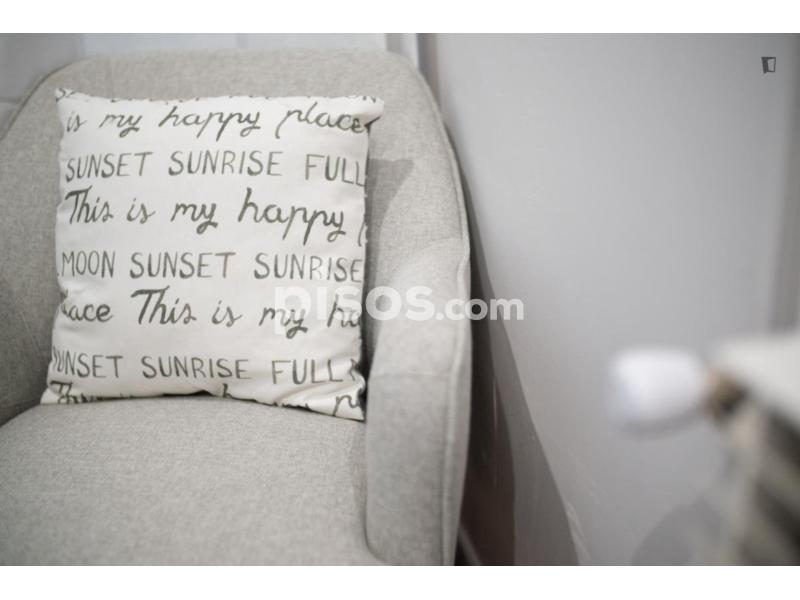 is my happy place
SUNSET SUNRISE FULL
This is my happy
MOON SUNSET SUNRISE
place This is my ha
SUNSET SUNRISE FULL
This is my happy
pisos.com